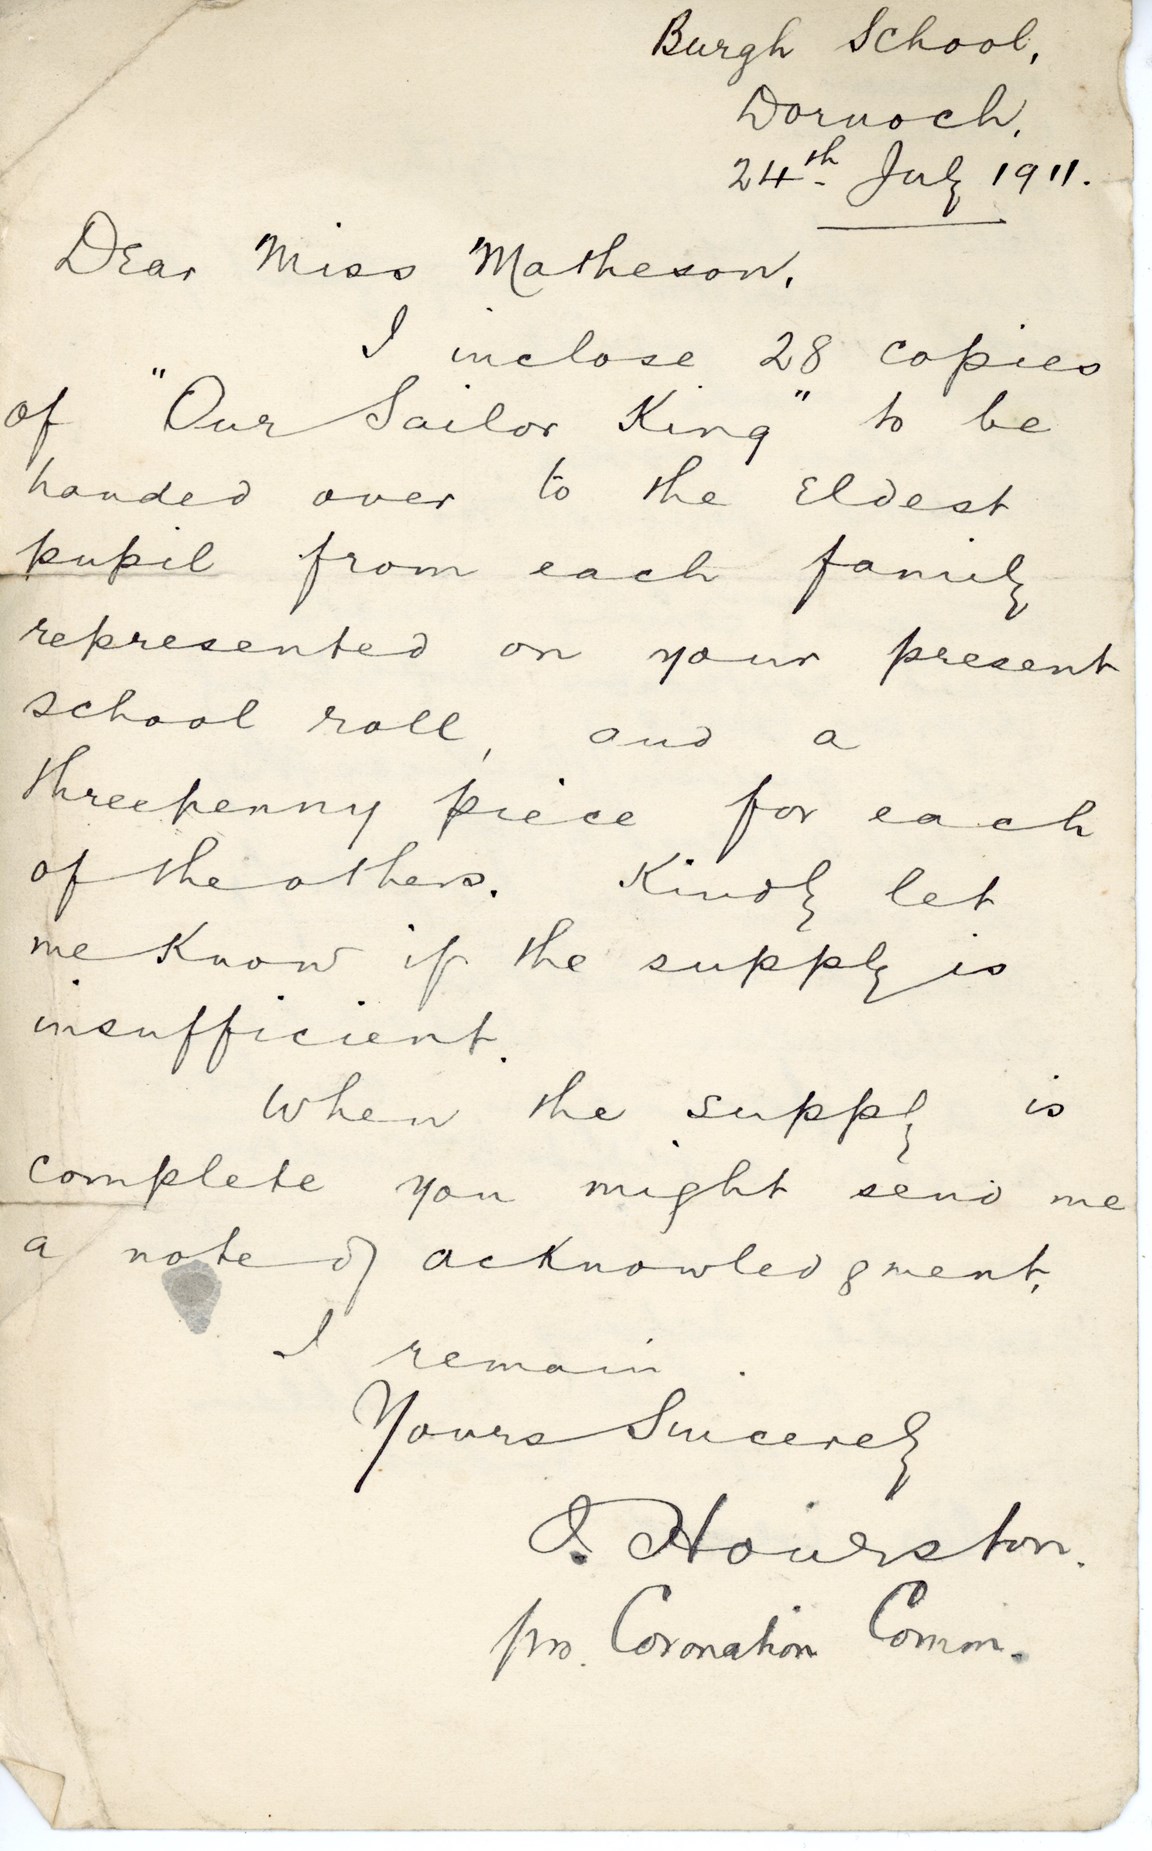 Burgh School,
Dornoch,
24th July 1911.
Dear Miss Matheson,
I inclose 28 copies
of "Our Sailor King" to be
handed over to the Eldest
pupil from each family
represented on your present
school roll, and a
threepenny piece for each
of the others. Kindly let
me Know if the supply is
insufficient.
When the supply is
complete you might send me
a note of acknowledgment.
I remain.
Yours Sincerely
J. Hourston.
pro. Coronation Comm.